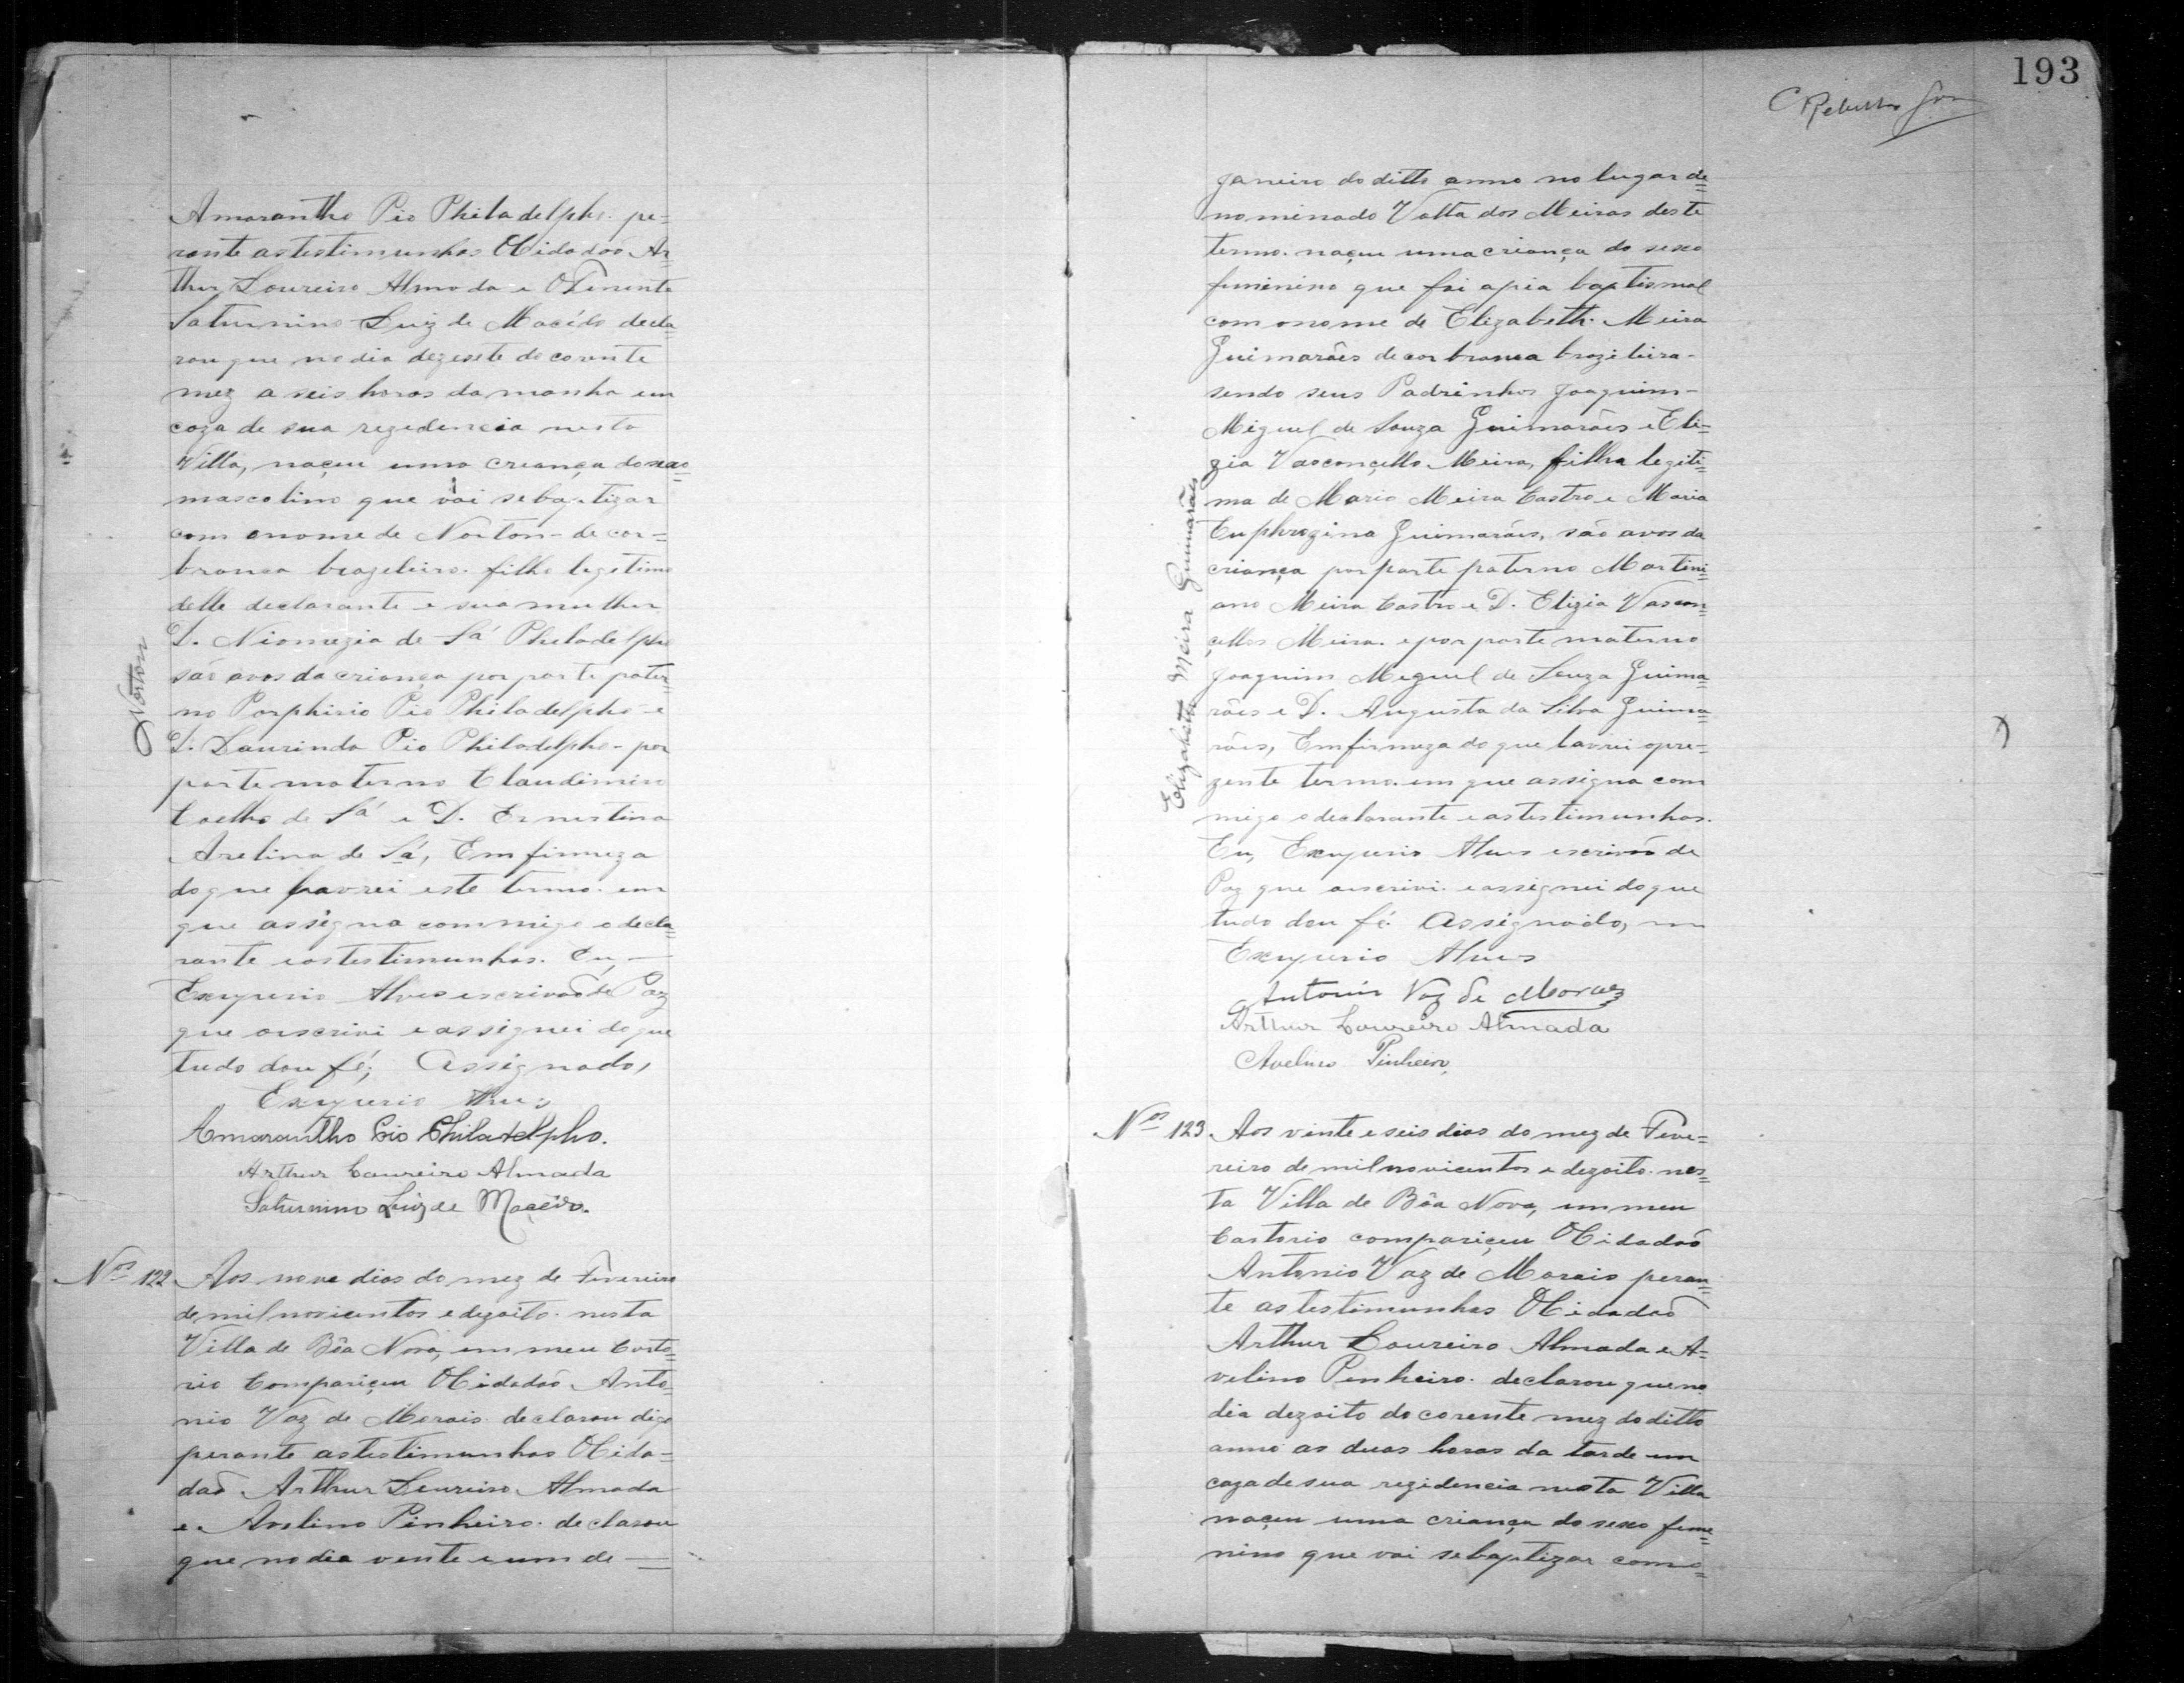 Amarantho Pio Philadelpho. pe-
rante as testimunhas O Cidadão Ar=
thur Loureiro Almada e O Tenente
Saturnino Luiz de Macêdo decla=
rou que no dia dezesete do corente
mez a seis horas da manha em
caza de sua rezedencia nesta
Villa, naçeu uma creança do sexo
mascolino que vai se baptizar
com o nome de Norton - de cor=
branca brazeleiro. filho legetimo
delle declarante e sua mulher
D. Niomezia de Sá Philadelpho
são avos da criança por parte pater=
no Porphirio Pio Philadelpho e
D. Laurinda Pio Philadelpho - por
parte materno Claudimiro
Coelho de Sá e D. Ernestina
Arelina de Sá, Em firmeza
do que lavrei este termo. em
que assigna commigo o decla=
rante e as testimunhas. Eu, —
Exuperio Alves escrivaõ de Paz
que o escrivi e assignei do que
tudo dou fé; Assignado,
Exuperio Alves
Amarantho Pio Philadelpho.
Arthur Loureiro Almada
Saturnino Luiz de Macêdo.
Norton
Nos 122 Aos nove dias do mez de Fevereiro
de mil novicentos e dezoito. nesta
Villa de Bôa Nova, em meu Carto=
rio Compariçeu O Cidadaõ Anto=
nio Vaz de Morais declarou digo
perante as testimunhas O Cida=
daõ Arthur Loureiro Almada
e. Avelino Pinheiro. declarou
que no dia vente e um de =
193
C Rebello
janeiro do ditto anno no lugar de=
nominado Volta dos Meiras deste
termo. naçeu uma criança do sexo
fiminino que foi a pia baptismal
com o nome de Elizabeth. Meira
Guimarães de cor branca brazileira -
sendo seus Padrinhos Joaquim -
Miguel de Souza Guimarães e Eli=
zia Vasconçello Meira, filha legiti=
ma de Mario Meira Castro e Maria
Euphrozina Guimarães, são avos da
criança por parte paterno Martini=
ano Meira Castro e D. Elizia Vascon=
çellos Meira. e por parte materno
Joaquim Miguel de Souza Guima=
rães e D. Augusta da Silva Guima=
rães, Em firmeza do que lavrei o pre=
zente termo. em que assigna com
migo o declarante e as testimunhas.
Eu, Exuperio Alves escrivaõ de
Paz que o escrivi. e assignei do que
tudo dou fé. Assignado,
Exuperio Alves
Antonio Vaz de Moraes
Arthur Loureiro Almada
Avelino Pinheiro,
Elizabeth Meira Guimarães
Nos 123 Aos vinte e seis dias do mez de Feve=
reiro de mil novicentos e dezoito. nes=
ta Villa de Bôa Nova, em meu
Cartorio compariçeu O Cidadaõ
Antonio Vaz de Morais peran=
te as testimunhas O Cidadaõ
Arthur Loureiro Almada e A=
velino Pinheiro. declarou que no
dia dezoito do corente mez do ditto
anno as duas horas da tarde em
caza de sua rezidencia nesta Villa
naçeu uma criança do sexo feme=
nino que vai se baptizar com o=